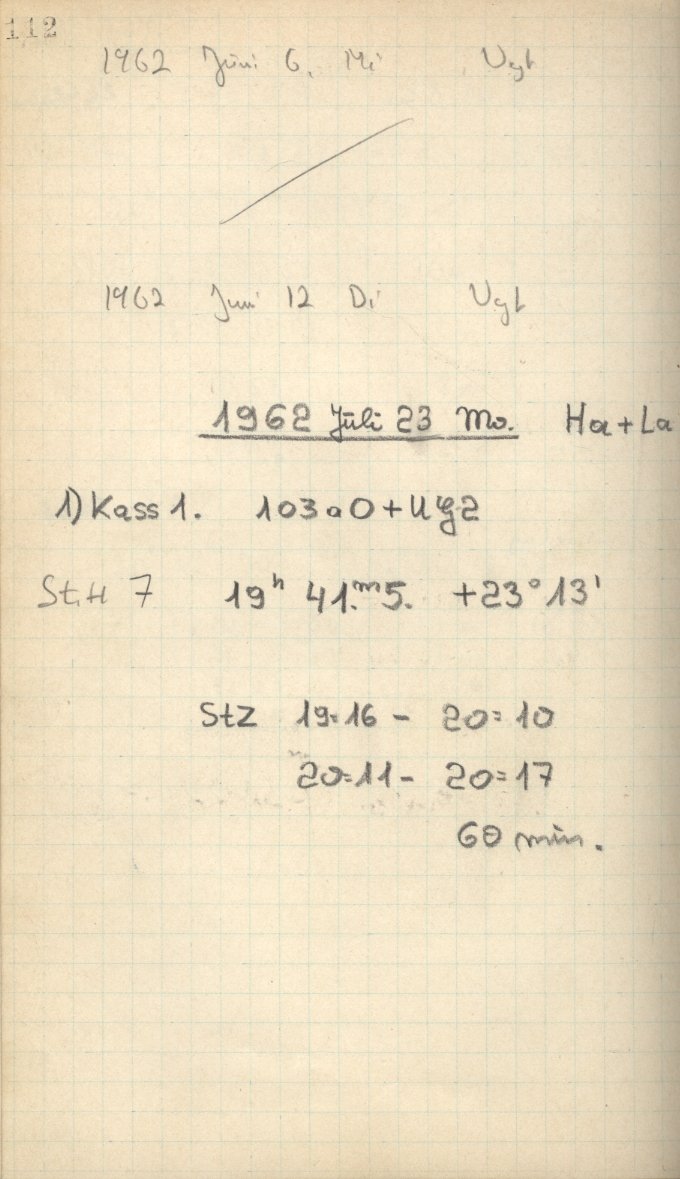 112
1962 Juni 6. Mi Vgt
1962 Juni 12 Di Vgt
1962 Jŭli 23 Mo. Ha + La
1) Kass 1. 103aO + UG2
St. H 7 19h 41.m5. +23° 13'
StZ 19=16 - 20=10
20=11 - 20=17
60 min.